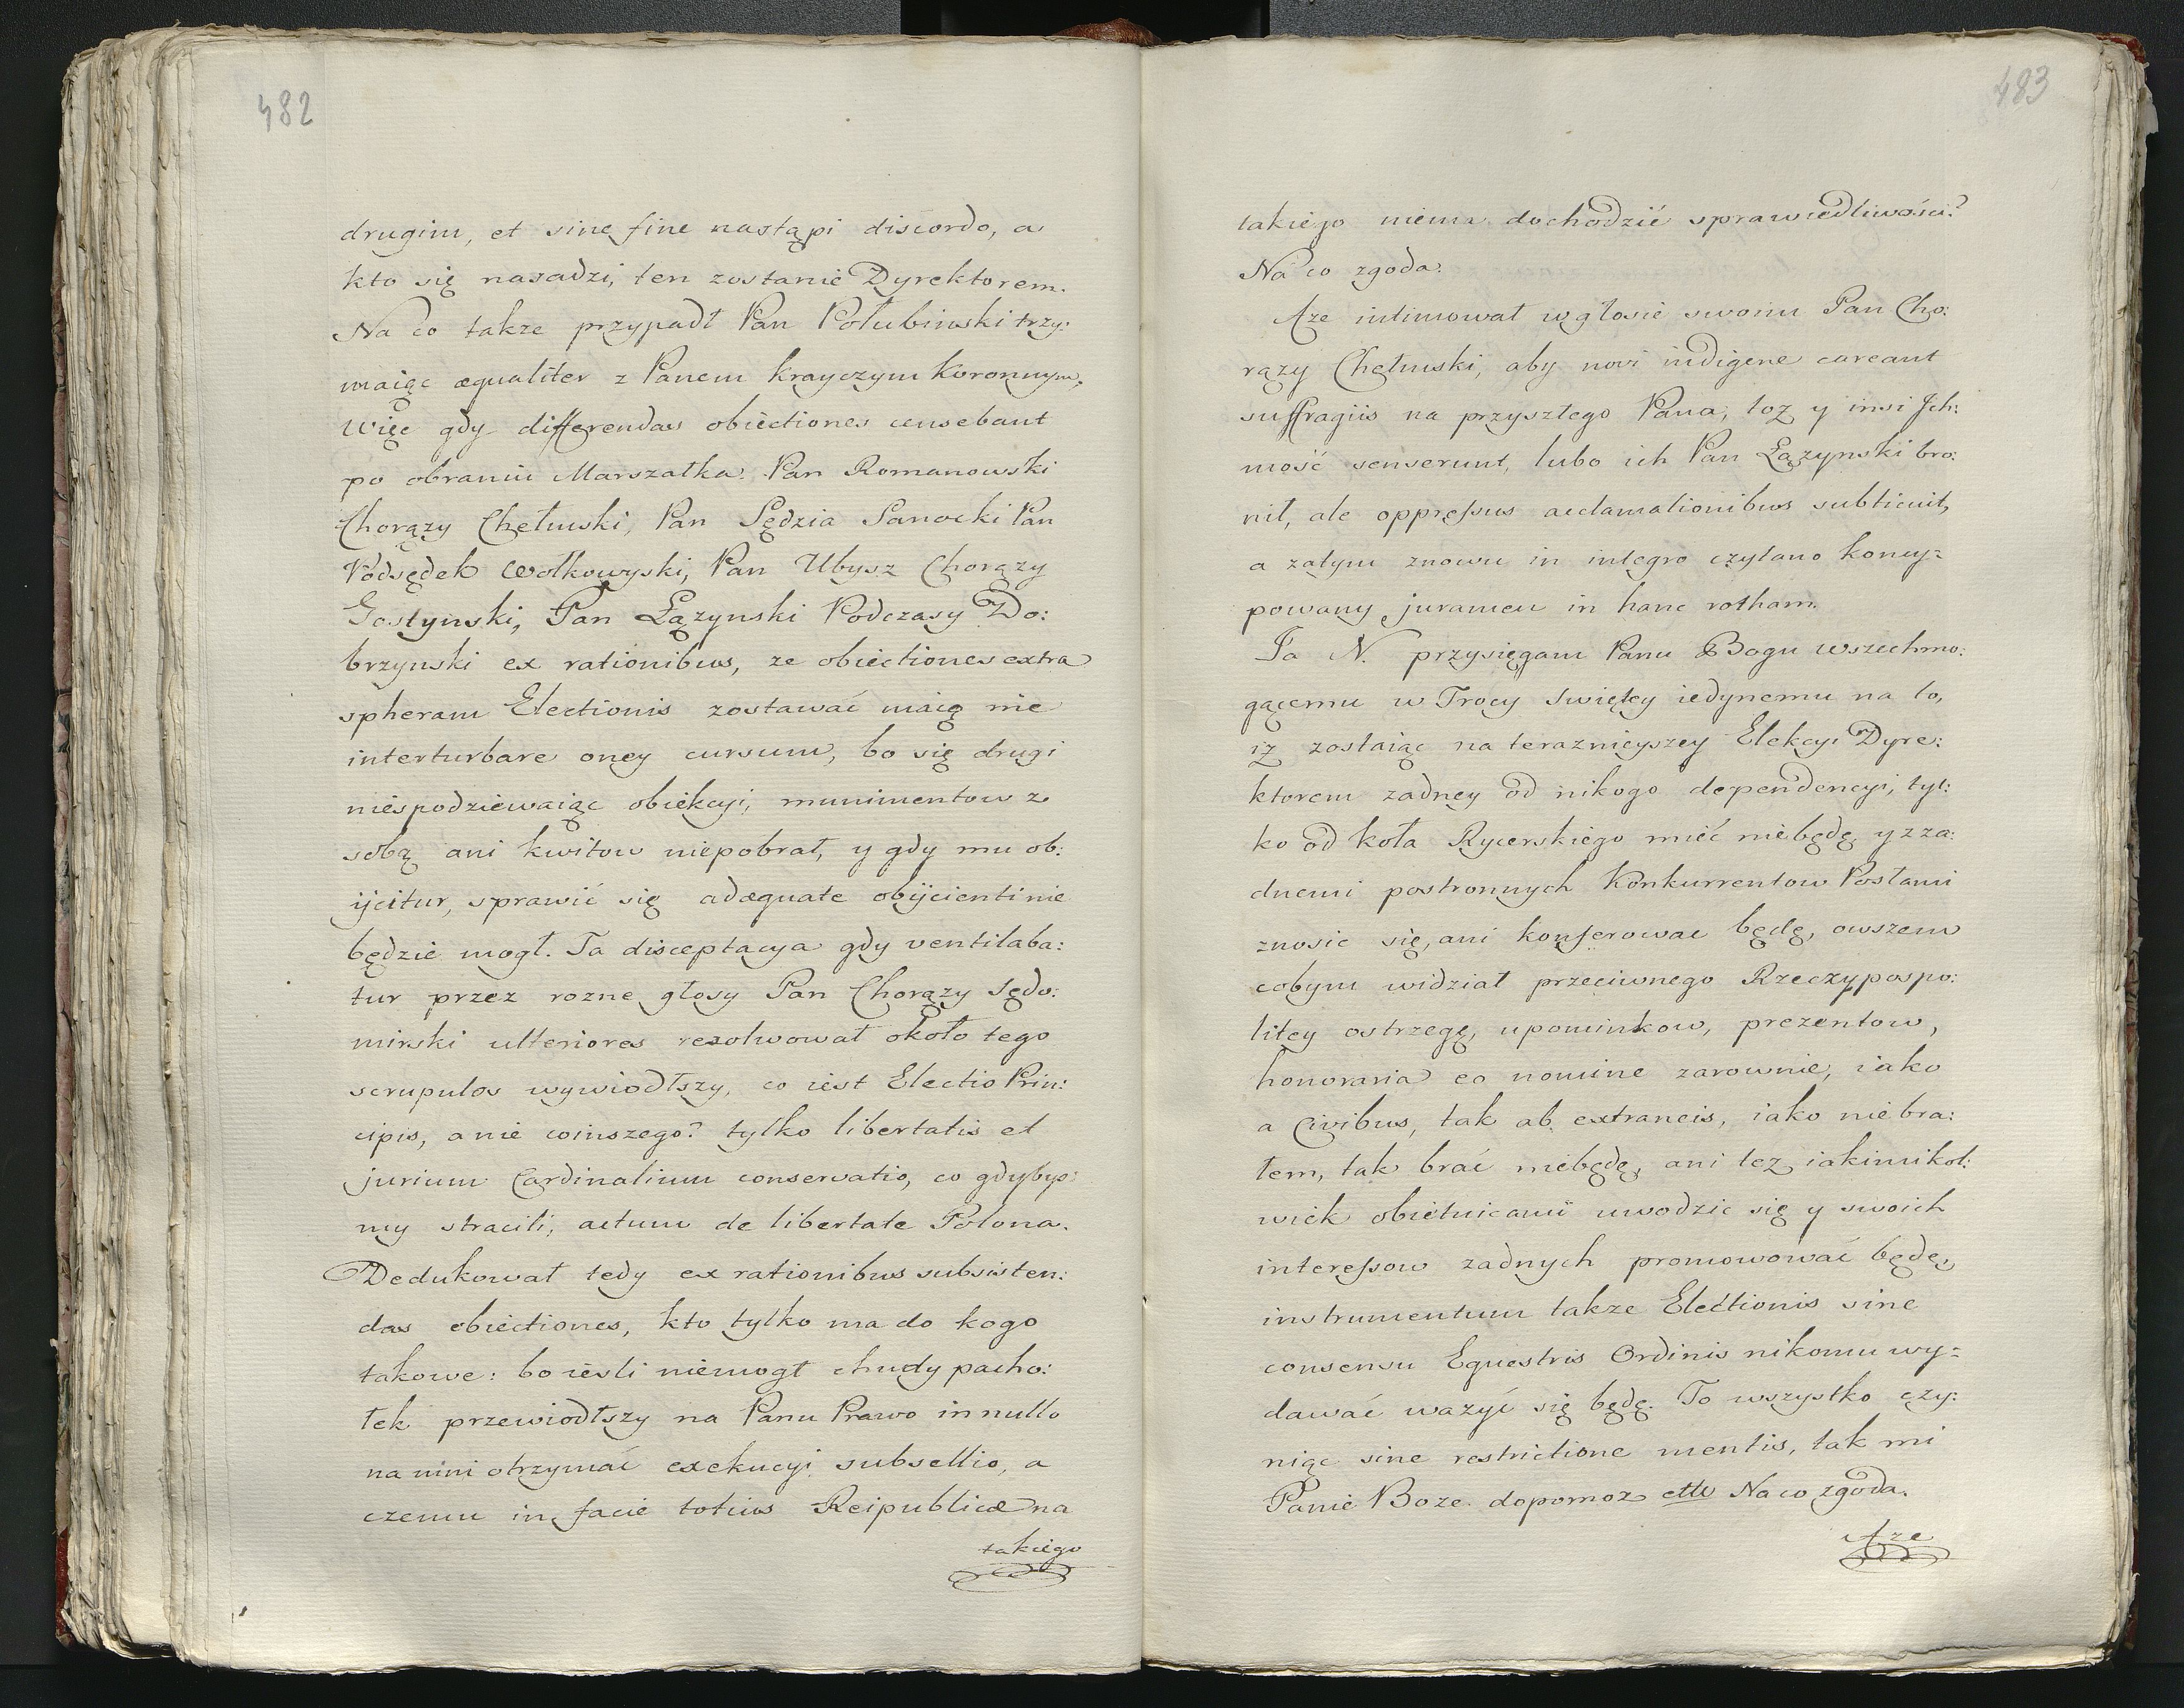 482
drugim, et sine fine nastąpi discordo, a
kto się nasadzi, ten zostanie Dyrektorem.
Na co takze przypadł Pan Połubinski trzy:
maiąc æqualiter z Panem Krayczym Koronnym.
Więc gdy differendas obiectiones censebant
po obraniu Marszałka. Pan Romanowski
Chorązy Chełmski, Pan Sędzia Sanocki Pan
Podsędek Wołkowyski, Pan Ubysz Chorązy
Gostynski, Pan Łązynski Podczasy Do:
brzynski ex rationibus, ze obiectiones extra
spheram Electionis zostawać maią nie
interturbare oney cursum, bo się drugi
niespodziewaiąc obiekcyi, munimentow z
sobą ani kwitow niepobrał, y gdy mu ob:
ijcitur, sprawić się adæquate obijcienti nie
będzie mogł. Ta disceptacya gdy ventilaba:
tur przez rozne głosy Pan Chorązy Sędo:
mirski ulteriores rezolwował około tego
scrupulos wywiodłszy, co iest Electio Prin:
cipis, a nie co inszego? tylko libertatis et
jurium Cardinalium conservatio, co gdybyś:
my stracili, actum de libertate Polona.
Dedukował tedy ex rationibus subsisten:
das obiectiones, kto tylko ma do kogo
takowe: bo iesli niemogł chudy pacho:
łek przewiodłszy na Panu Prawo in nullo
na nim otrzymać exekucyi subsellio, a
czemu in facie totius Reipublicæ na
takiego
483
takiego niema dochodzić sprawiedliwości?
Na co zgoda.
Aze intimował w głosie swoim Pan Cho:
rązy Chełmski, aby novi indigene careant
suffragiis na przyszłego Pana, toz y insi Jch:
mość senserunt, lubo ich Pan Łązynski bro:
nił, ale oppressus acclamationibus subticuit,
a zatym znowu in integro czytano koncy=
powany juramen in hanc rotham.
Ja N. przysięgam Panu Bogu wszechmo:
gącemu w Trocy Swiętey iedynemu na to,
iz zostaiąc na teraznieyszey Elekcyi Dyre:
ktorem zadney od nikogo dependencyi, tyl:
ko od koła Rycerskiego mieć niebędę y z za:
dnemi postronnych Konkurrentow Posłami
znosic się, ani konferowac będę, owszem
cobym widział przeciwnego Rzeczypospo:
litey ostrzegę, upominkow, prezentow,
honoraria eo nomine zarownie, iako
a Civibus, tak ab extraneis, iako nie bra:
łem, tak brać niebędę, ani tez iakimikol:
wiek obietnicami uwodzic się y swoich
interessow zadnych promowować będę,
instrumentum takze Electionis sine
consensu Equestris Ordinis nikomu wy=
dawać wazyć się będę. To wszystko czy:
niąc sine restrictione mentis, tak mi
Panie Boze dopomoz ettc Na co zgoda.
Aze